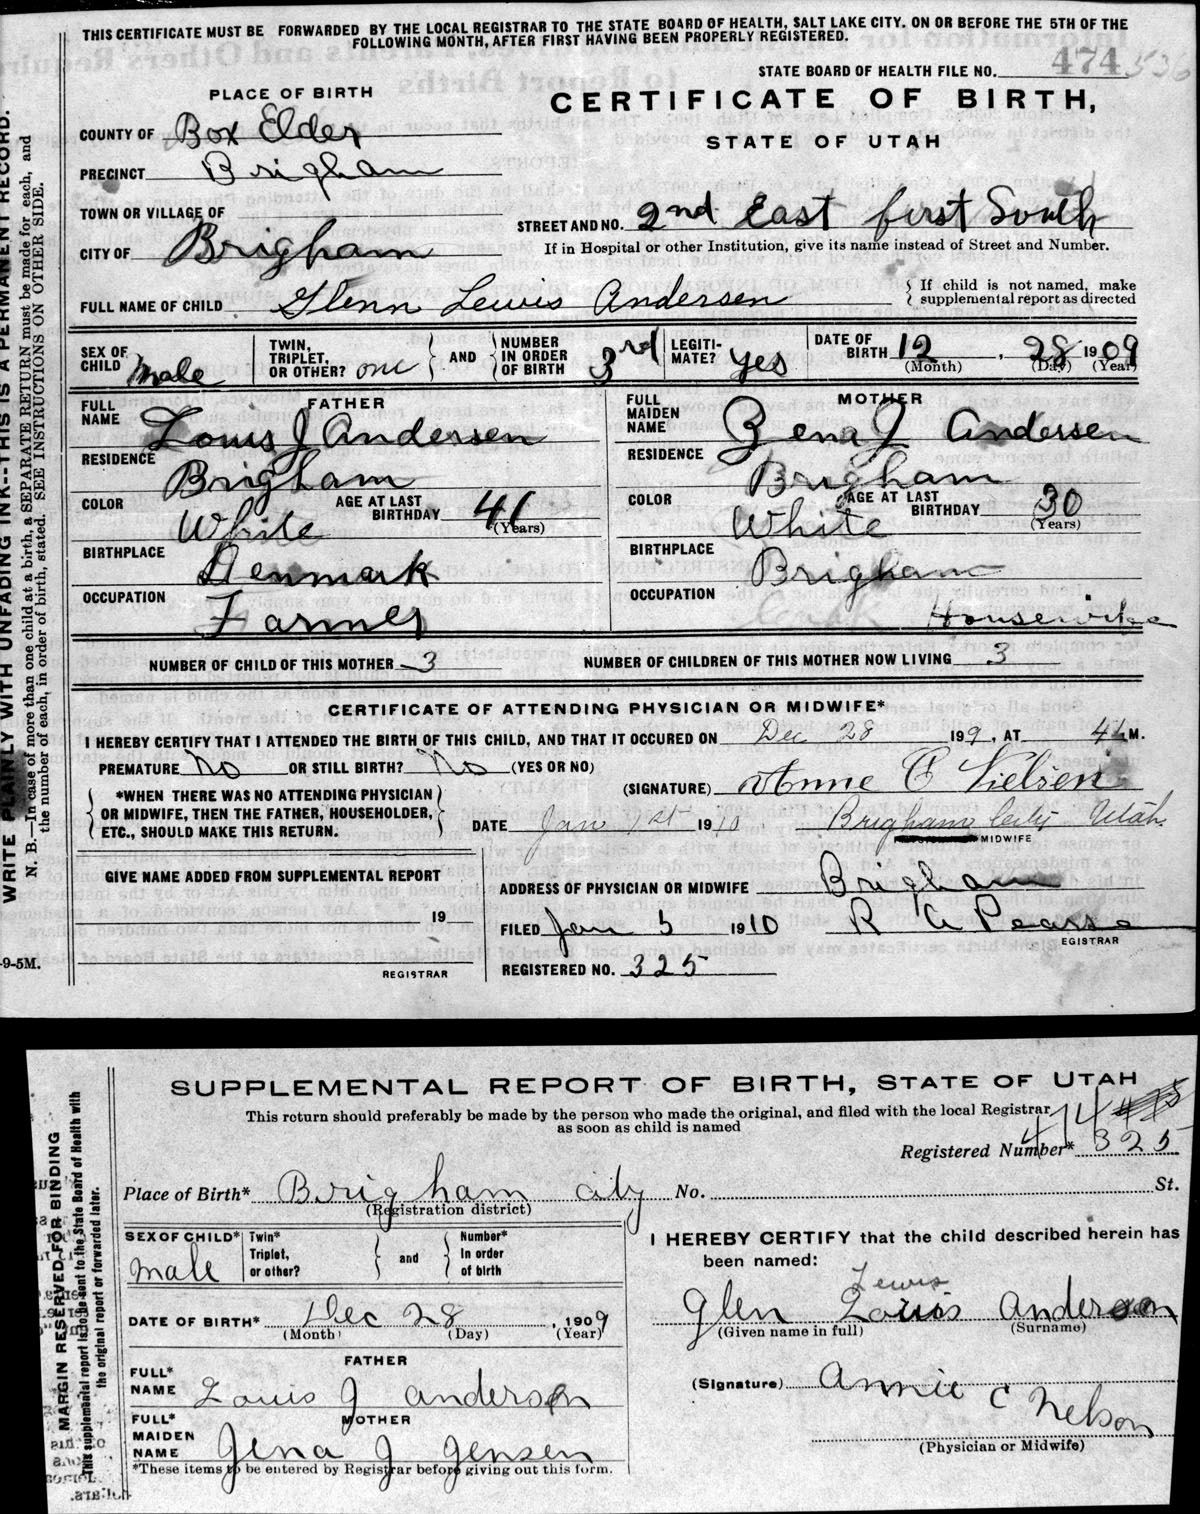 THIS CERTIFICATE MUST BE FORWARDED BY THE LOCAL REGISTRAR TO THE STATE BOARD OF HEALTH, SALT LAKE CITY. ON OR BEFORE THE 5TH OF THE
FOLLOWING MONTH, AFTER FIRST HAVING BEEN PROPERLY REGISTERED.
STATE BOARD OF HEALTH FILE NO. 474 536
PLACE OF BIRTH
CERTIFICATE OF BIRTH,
STATE OF UTAH
COUNTY OF Box Elder
PRECINCT Brigham
TOWN OR VILLAGE OF
STREET AND NO. 2nd East first South
If in Hospital or other Institution, give its name instead of Street and Number.
CITY OF Brigham
FULL NAME OF CHILD Glenn Lewis Andersen
If child is not named, make
supplemental report as directed
SEX OF CHILD Male
TWIN, TRIPLET, OR OTHER? one AND NUMBER IN ORDER OF BIRTH 3rd
LEGITIMATE? yes
DATE OF BIRTH 12, 28 1909
(Month) (Day) (Year)
FATHER
FULL NAME Louis J Andersen
RESIDENCE Brigham
COLOR White
AGE AT LAST BIRTHDAY 41 (Years)
BIRTHPLACE Denmark
OCCUPATION Farmer
MOTHER
FULL MAIDEN NAME Zena J Andersen
RESIDENCE Brigham
COLOR White
AGE AT LAST BIRTHDAY 30 (Years)
BIRTHPLACE Brigham
OCCUPATION Housewife
NUMBER OF CHILD OF THIS MOTHER 3
NUMBER OF CHILDREN OF THIS MOTHER NOW LIVING 3
CERTIFICATE OF ATTENDING PHYSICIAN OR MIDWIFE*
I HEREBY CERTIFY THAT I ATTENDED THE BIRTH OF THIS CHILD, AND THAT IT OCCURED ON Dec 28 199, AT M.
PREMATURE No OR STILL BIRTH? No (YES OR NO)
(SIGNATURE) Anne C Nielsen
*WHEN THERE WAS NO ATTENDING PHYSICIAN
OR MIDWIFE, THEN THE FATHER, HOUSEHOLDER,
ETC., SHOULD MAKE THIS RETURN.
DATE Jan 1st 1910 Brigham City Utah
MIDWIFE
GIVE NAME ADDED FROM SUPPLEMENTAL REPORT
19
REGISTRAR
ADDRESS OF PHYSICIAN OR MIDWIFE Brigham
FILED Jan 5 1910 R A Pearse
EGISTRAR
REGISTERED NO. 325
WRITE PLAINLY WITH UNFADING INK--THIS IS A PERMANENT RECORD.
N. B.—In case of more than one child at a birth, a SEPARATE RETURN must be made for each, and
the number of each, in order of birth, stated. SEE INSTRUCTIONS ON OTHER SIDE.
-9-5M.
SUPPLEMENTAL REPORT OF BIRTH, STATE OF UTAH
This return should preferably be made by the person who made the original, and filed with the local Registrar
as soon as child is named
474
Registered Number* 325
Place of Birth* Brigham city No. St.
(Registration district)
SEX OF CHILD* male
Twin* Triplet, or other? and Number* In order of birth
DATE OF BIRTH* Dec 28, 1909
(Month) (Day) (Year)
FATHER
FULL* NAME Louis J anderson
MOTHER
FULL* MAIDEN NAME Jena J Jensen
*These items to be entered by Registrar before giving out this form.
I HEREBY CERTIFY that the child described herein has
been named:
Lewis
Glen Louis Anderson
(Given name in full) (Surname)
(Signature) Annie C Nelson
(Physician or Midwife)
MARGIN RESERVED FOR BINDING
This supplemental report is to be sent to the State Board of Health with
the original report or forwarded later.